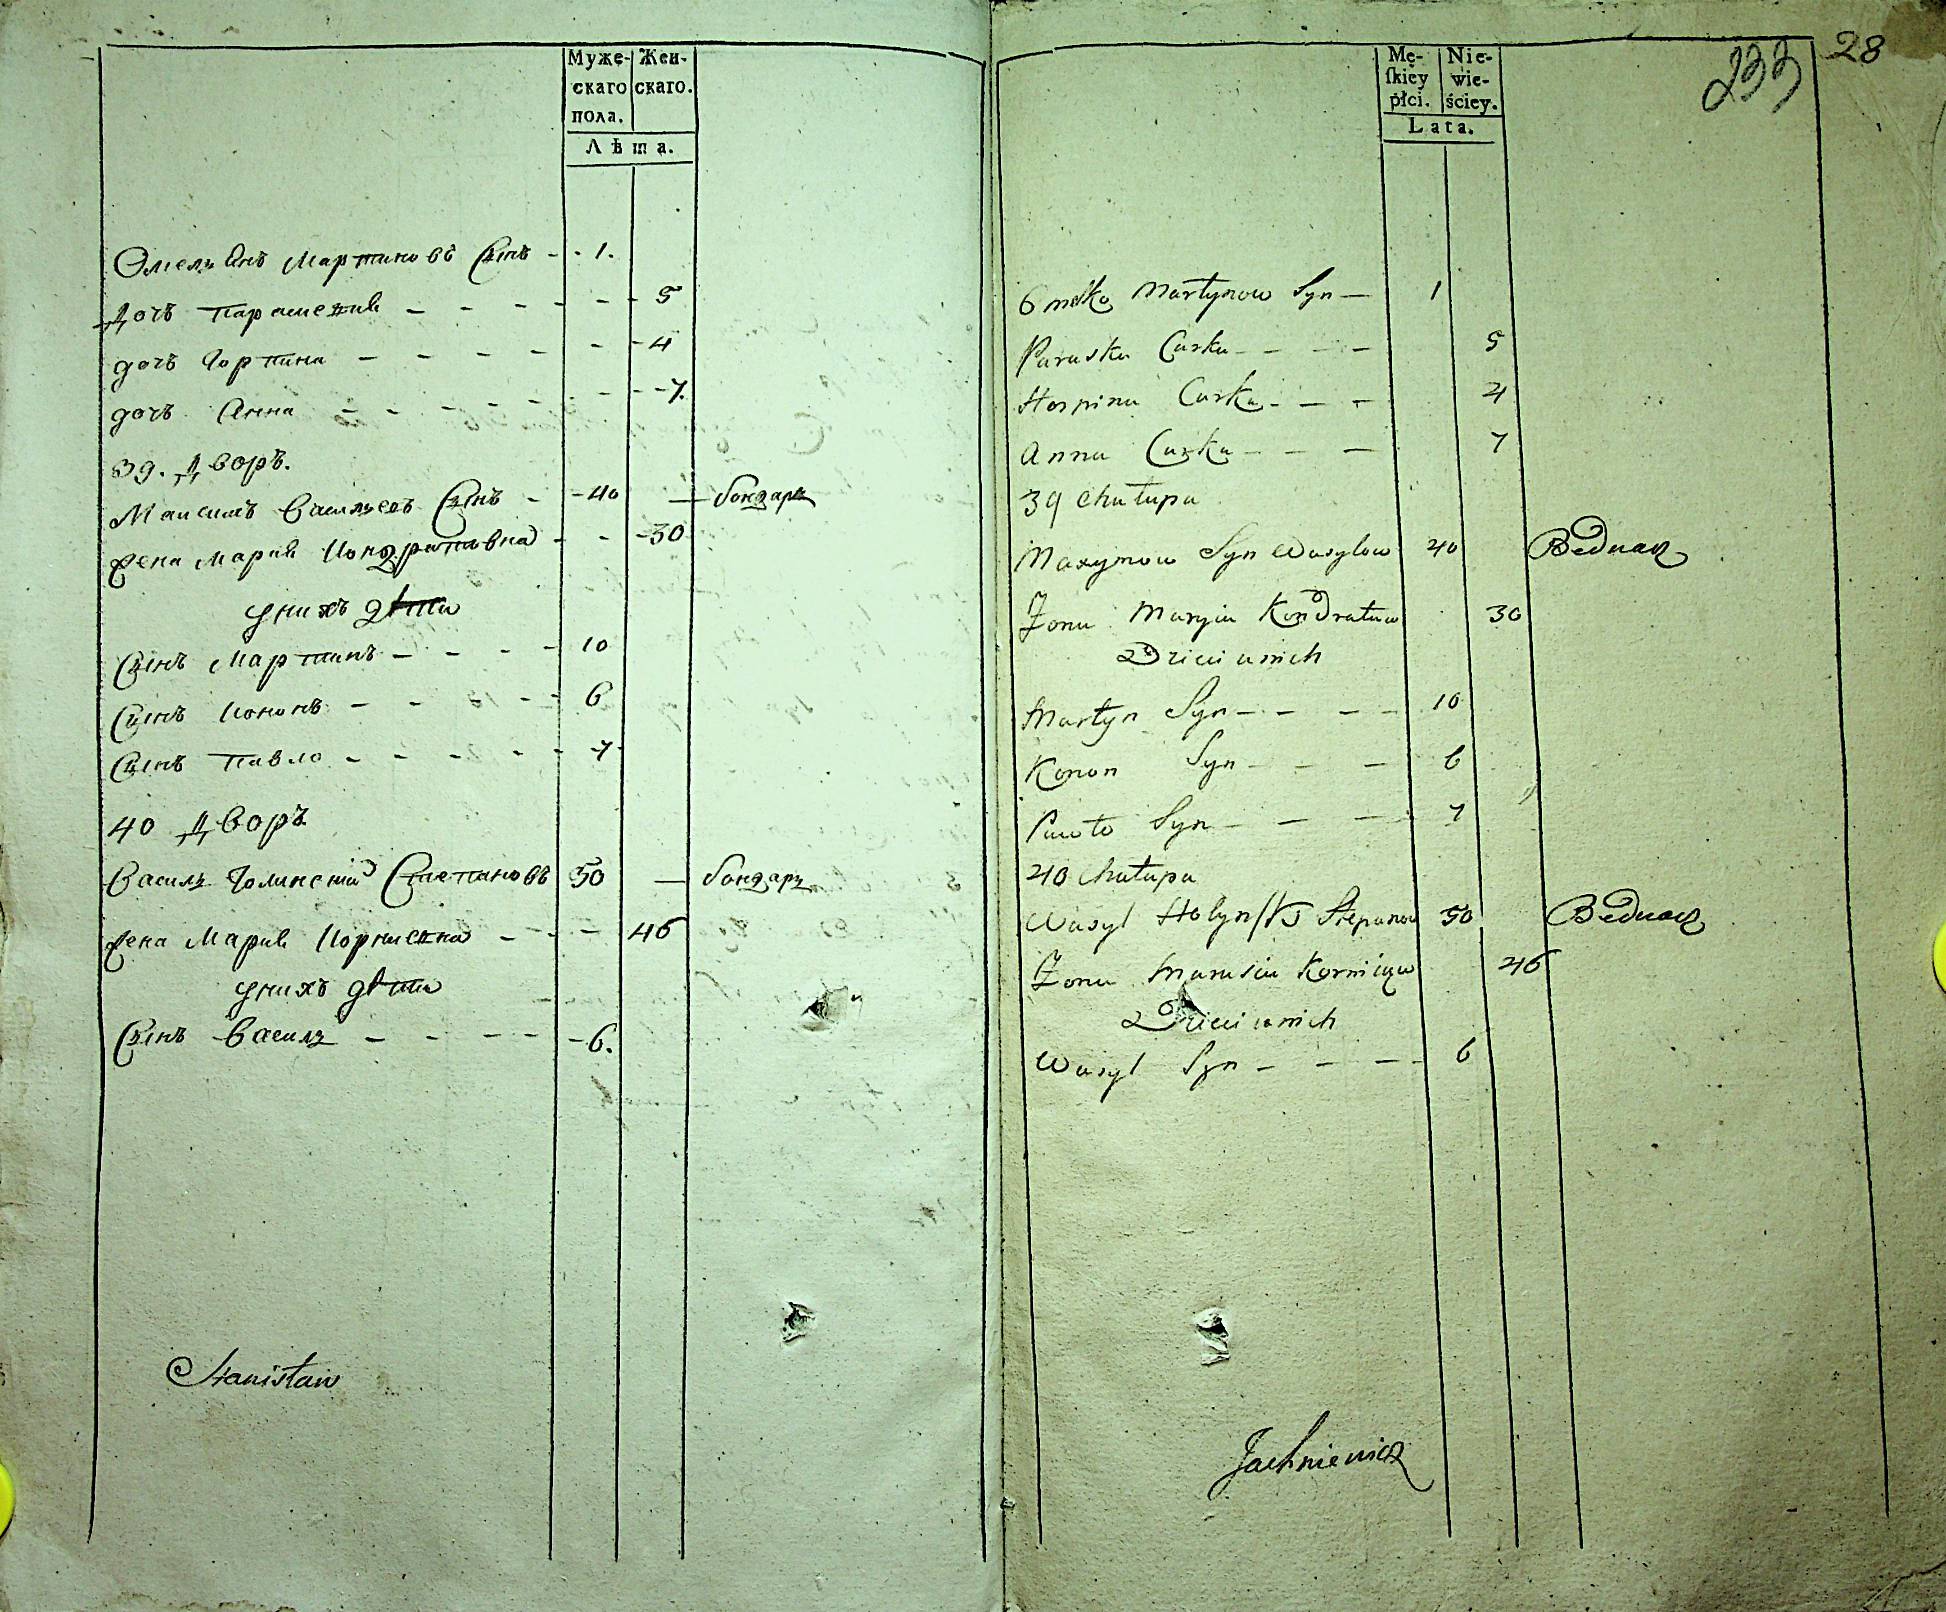 Муже- Жен-
скаго скаго.
пола.
Лѣта.
Омельянъ Мартиновъ Сынъ - - 1.
Дочъ Параскевия - - - - - - 5
дочъ Горпина - - - - - - 4
дочъ Анна - - - - - - - 7.
39. Дворъ.
Максимъ Васильевъ Сынъ - - 40 — бондарь
Жена Мария Кондратовна - - - 30
унихъ дѣти
Сынъ Мартинъ - - - - 10
Сынъ Кононъ - - - - - 6
Сынъ Павло - - - - - 7
40 Дворъ
Василь Голинский Степановъ 50 — бондарь
Жена Мария Корниевна - - - 46
унихъ дѣти
Сынъ Василь - - - - - 6.
Stanisław
28
233
Mę- Nie-
ſkiey wie-
płci. ściey.
Lata.
Martynow Syn — 1
Paraska Curka - - - - 5
Horpina Curka - - - 4
Anna Curka - - - 7
39 Chałupa
Maxymow Syn Wasylow 40 Bednarz
Żona Maryia Kondratowa 30
Dzieci u nich
Martyn Syn - - - - 10
Konon Syn - - - 6
Pawło Syn - - - 7
40 Chałupa
Wasyl Holynſki Stepanow 50 Bednarz
Żona Marusia 46
Dzieci u nich
Wasyl Syn - - - - 6
Jachniewicz